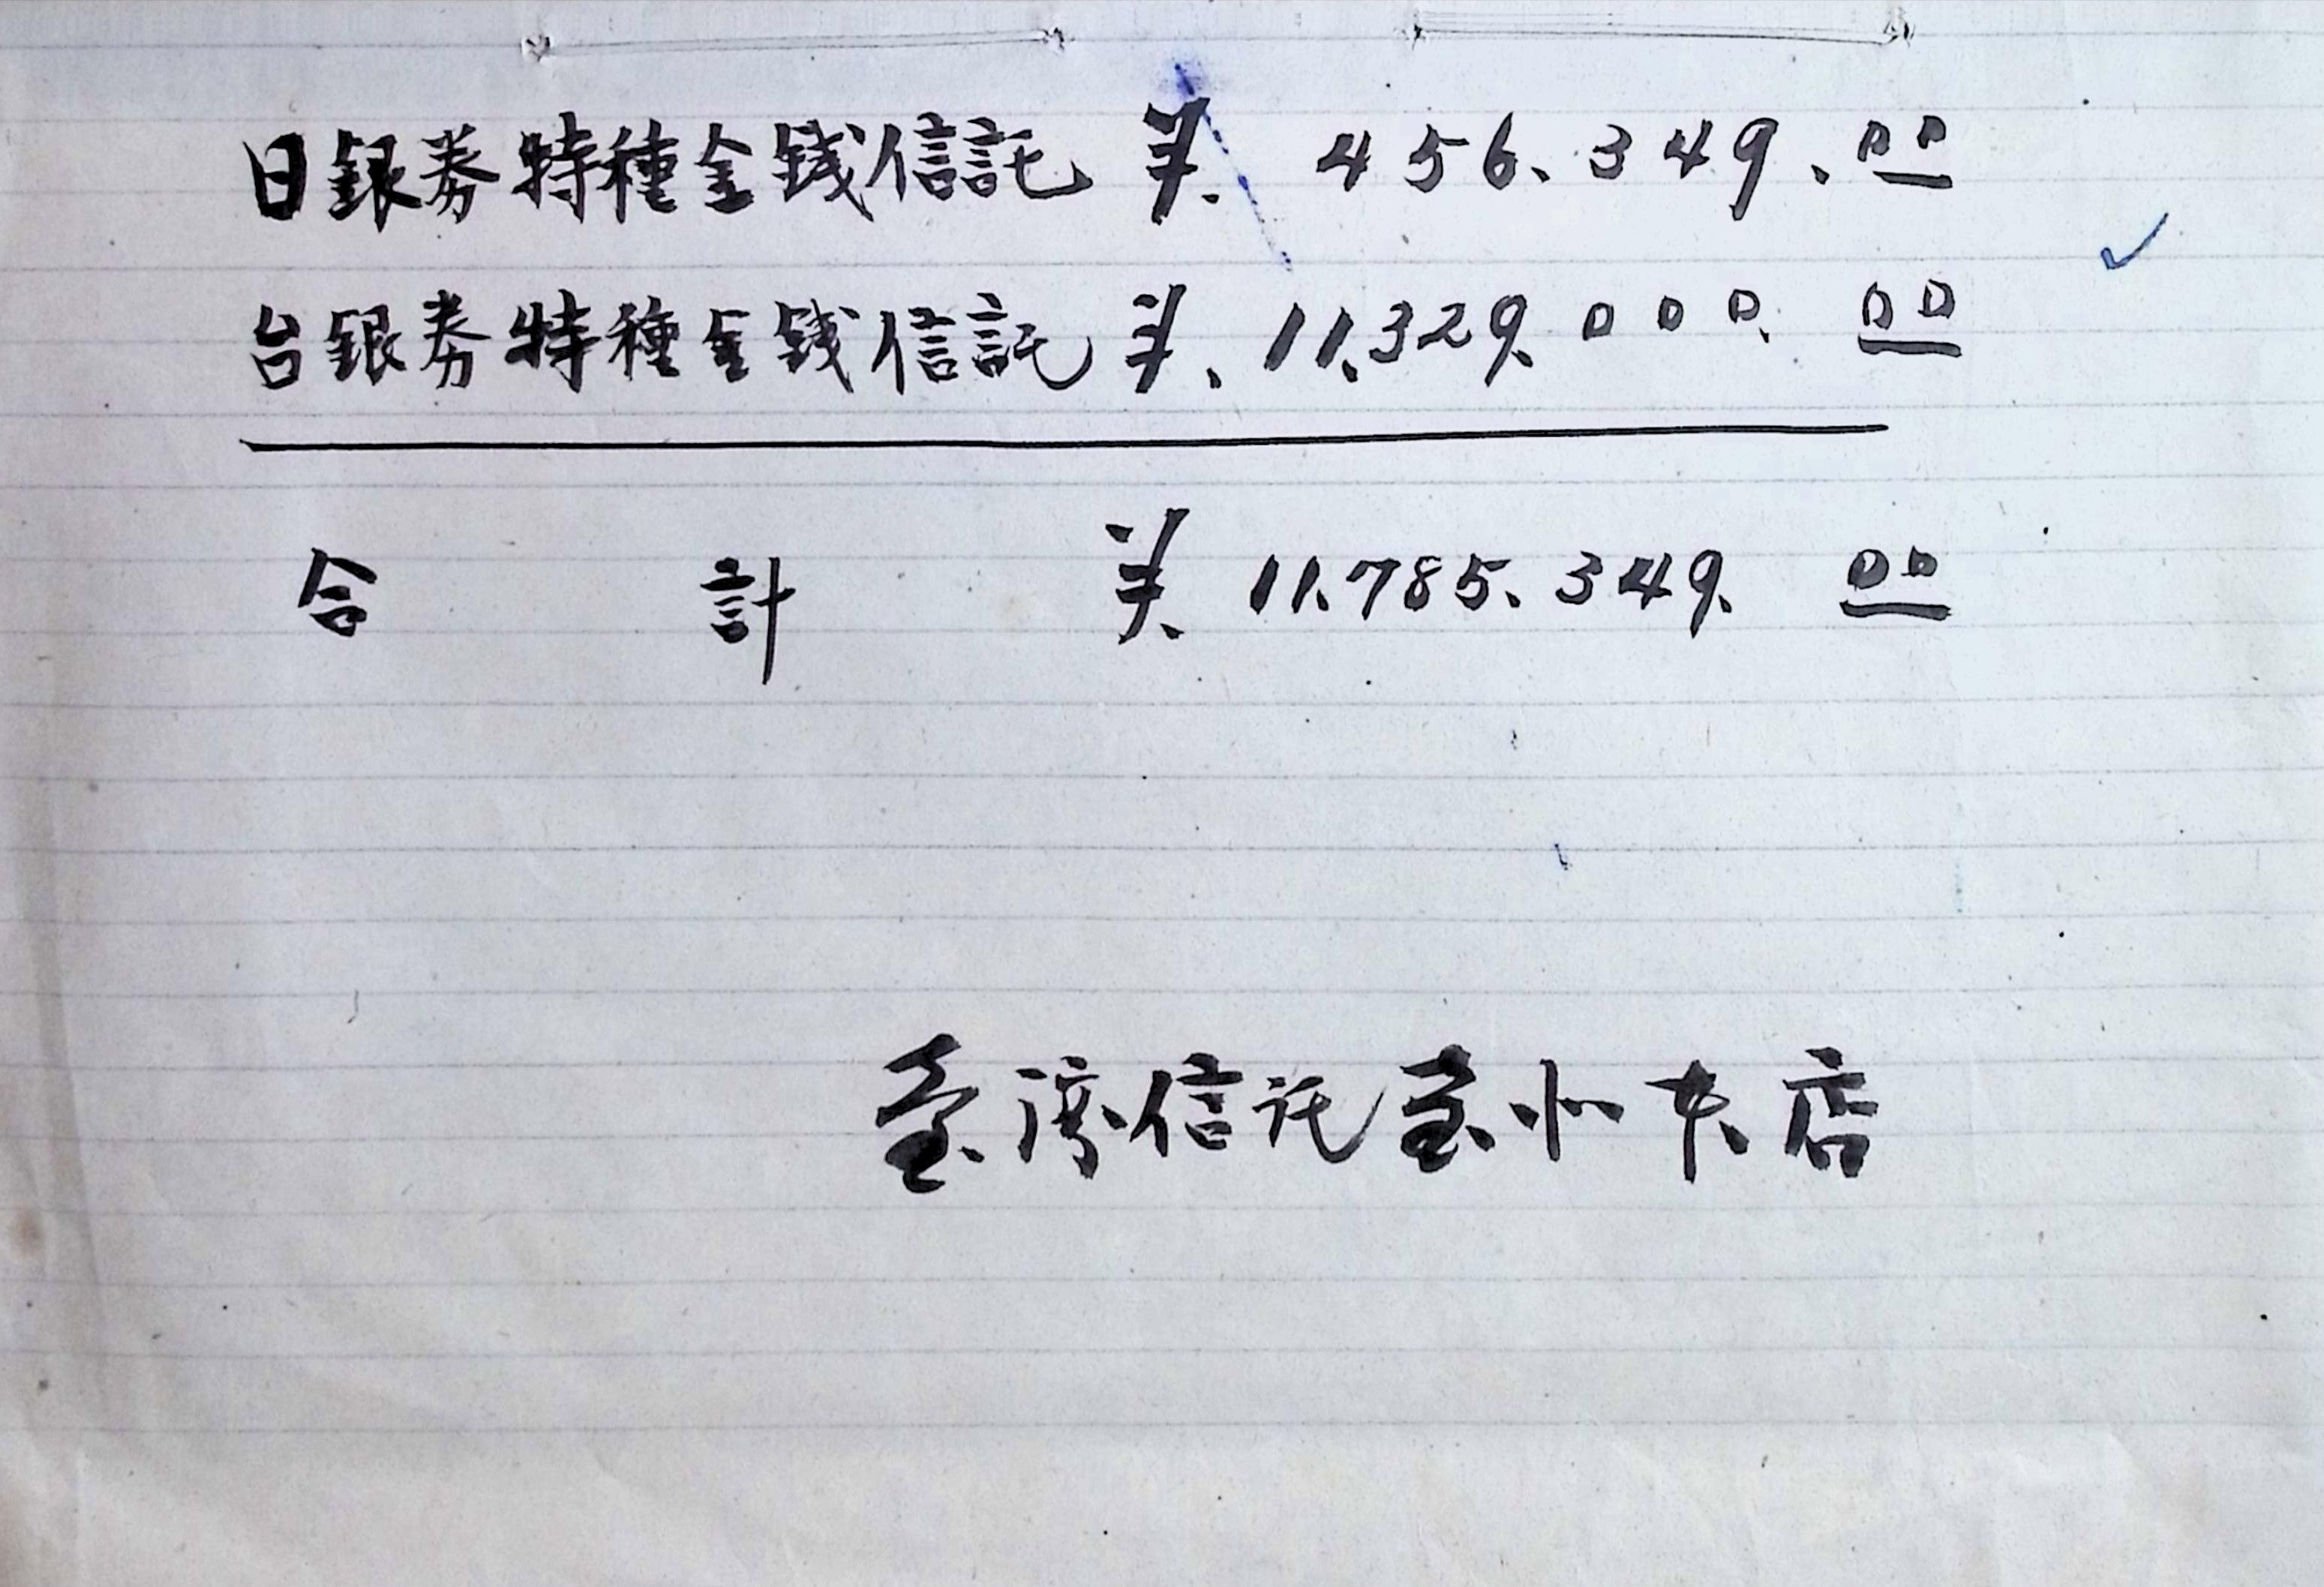 日銀券特種金錢信託 ¥. 456.349.00
台銀券特種金錢信託 ¥. 11.329.000.00
合計 ¥. 11.785.349.00
臺灣信託臺北本店